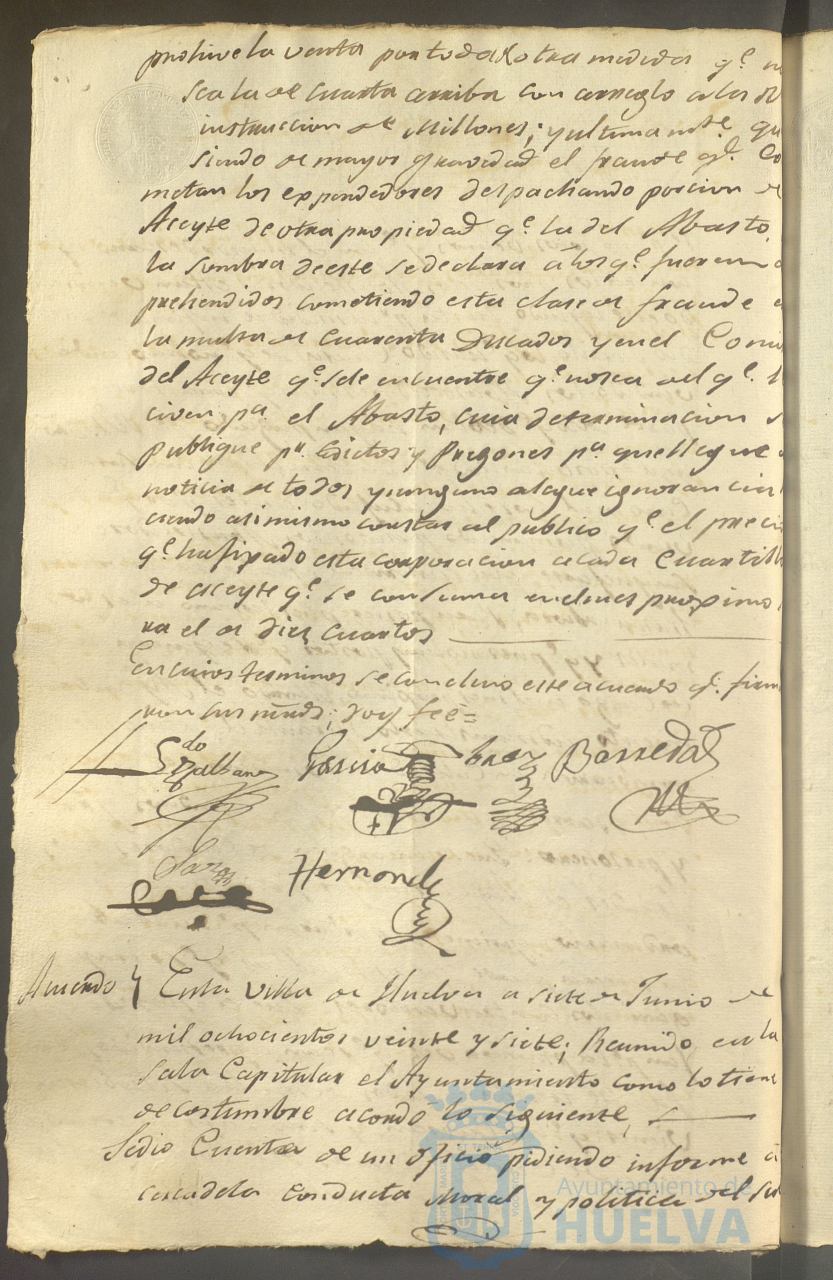 prohive la venta por toda otra medida qe. n
sea la de cuarta arriba con arreglo a las
instruccion de Millones; y ultimamte. qu
siendo de mayor gravedad el fraude qe. co
metan los expendedores despachando porcion de
Aceyte de otra propiedad qe. la del Abasto
la sombra de este se declara á los qe. fueren a
prehendidos cometiendo esta clase de fraude
la multa de Cuarenta Ducados y en el Comi
del Aceyte qe. se le encuentre qe. no sea del qe.
civen pa. el Abasto, cuia determinacion s
publique pr. Edictos y Pregones pa. que llegue
noticia de todos y ninguno alegue ignorancia
ciendo asi mismo constar al publico qe. el preci
qe. ha fixado esta corporacion a cada Cuartill
de aceyte qe. se consuma en el mes proximo
ra el de diez cuartos
En cuios terminos se concluio este acuerdo qe. firm
ron sus mrds; doy feé=
Garcia Baez Barreda
Hernandz
Acuerdo} En la Villa de Huelva a siete de Junio de
mil ochocientos veinte y siete; Reunido en la
sala Capitular el Ayuntamiento como lo tiene
de costumbre acordo lo siguiente,
Se dio Cuenta de un oficio pidiendo informe a
cerca de la conducta Moral y politica del
Ayuntamiento de
HUELVA